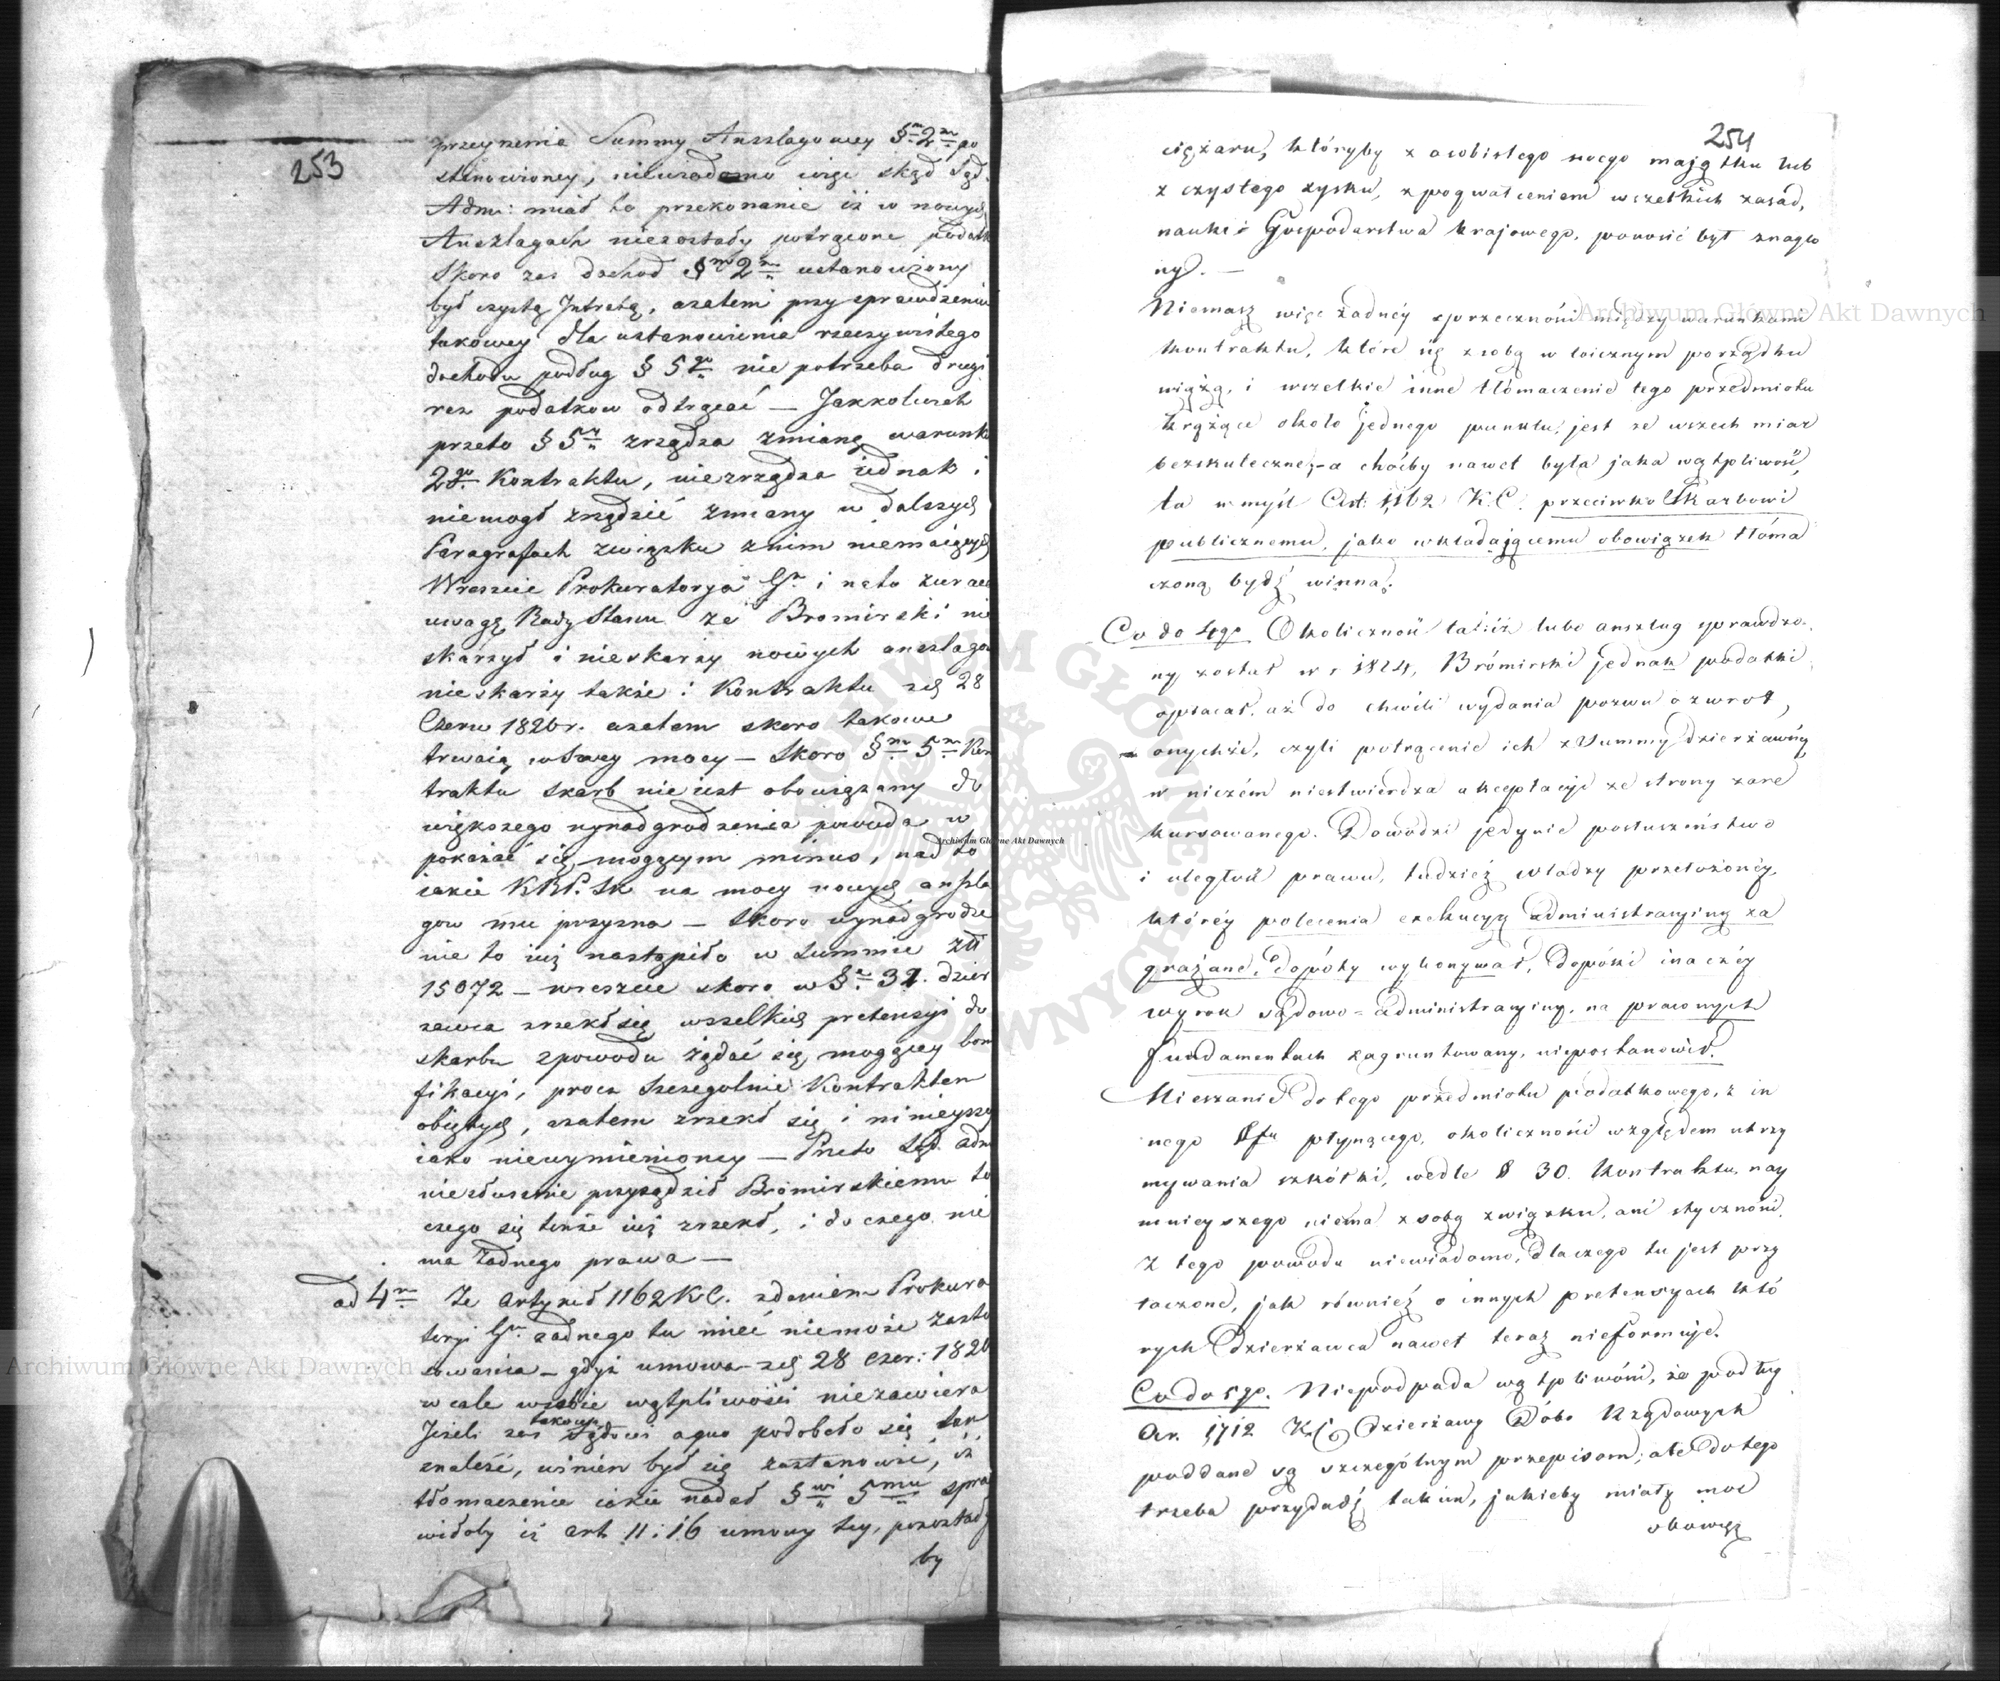 253
przeynenia Summy Anszlagowey §m 2m po
stanowioney, niewiadomo więc skąd Sąd
Adm: miał to przekonanie iż w nowych
Anszlagach niezostały potrącone podatk
Skoro zaś dochod §m 2m ustanowiony
był czystą Intratą, azatem przy sprawdzeniu
takowey dla ustanowienia rzeczywistego
dochodu podług § 5go nie potrzeba drugi
raz podatkow odtrącać — Jakkolwiek
przeto § 5r zrządza zmianę warunku
2go Kontraktu, niezrządza iednak i
niemogł zrządzić zmiany w dalszych
Paragrafach związku znim niemaiących
Wreszcie Prokuratorya Gn i na to zwraca
uwagę Rady Stanu że Bromirski nie
skarżył i nieskarży nowych anszlagow
nieskarży także i Kontraktu z 28
Czerw 1820 r. azatem skoro takowe
trwaią w swey mocy — Skoro §m 5m Kon
traktu skarb nie iest obowiązany do
większego wynadgrodzenia powoda w
pokazać się mogącym minus, nad to
iakie KRP. Sk na mocy nowych anszla
gow mu przyzna — skoro wynadgrodze
nie to iuż nastąpiło w summie zł
15072 — wreszcie skoro w § 31. dzier
żawca zrzekł się wszelkich pretensyi do
skarbu zpowodu żądać się mogącey bon
fikacyi, procz szczegolnie Kontraktem
obiętych, azatem zrzekł się i ninieyszey
iako niewymienioney — Przeto Sąd adm
niesłusznie przysądził Bromirskiemu to
czego się tenże iuż zrzekł, i do czego nie
ma żadnego prawa —
ad 4m Że artykuł 1162 KC. zdaniem Prokura
toryi Gn żadnego tu mieć niemoże zasto
sowania — gdyż umowa z 28 Czer: 1820
wcale w sobie wątpliwości niezawiera
Jeżeli zaś takową Sądowi a quo podobało się tam
znaleść, winien był się zastanowić, iż
tłomaczenie iakie nadał §wi 5mu spra
wiłoby iż art 11 i 16 umowy tey, pozostały
by
254
ciężaru, któryby z osobistego swego majątku lub
z czystego zysku, z pogwałceniem wszelkich zasad,
nauki Gospodarstwa krajowego, ponosić był znaglo
ny. —
Niemasz więc żadnéy sprzeczności między warunkami
kontraktu, które się z sobą w loicznym porządku
wiążą, i wszelkie inne tłómaczenie tego przedmiotu
krążące około jednego punktu, jest ze wszech miar
bezskuteczne, a choćby nawet była jaka wątpliwość,
ta w myśl Art: 1162 K. C. przeciwko Skarbowi
publicznemu, jako wkładającemu obowiązek tłóma
czoną bydź winna.
Co do 4go. Okoliczność ta: iż lubo anszlag sprawdzo
ny został w r 1824, Brómirski jednak podatki
opłacał, aż do chwili wydania pozwu o zwrot,
onychże, czyli potrącenie ich z Summy dzierżawnéy,
w niczém niestwierdza akceptacyi ze strony zare
kursowanego. Dowodzi jedynie posłuszeństwo
i uległość prawu, tudzież władzy przełożonéy,
któréy polecenia exekucyą administracyiną za
grażane, dopóty wykonywał, dopóki inaczéy
wyrok sądowo-administracyiny, na prawnych
fundamentach zagruntowany, niepostanowił.
Mieszanie do tego przedmiotu podatkowego, z in
nego §fu płynącego, okoliczności względem utrzy
mywania szkółki, wedle § 30. Kontraktu, nay
mnieyszego niema z sobą związku, ani styczności,
Z tego powodu niewiadomo, dlaczego tu jest przy
taczone, jak również o innych pretensyach któ
rych dzierżawca nawet teraz nieformuje.
Co do 5go. Niepodpada wątpliwości, że podług
Ar. 1712 K. C. Dzierżawy Dóbr Rządowych
poddane są szczególnym przepisom; ale do tego
trzeba przydadź takim, jakieby miały moc
obowią
Archiwum Główne Akt Dawnych
Archiwum Główne Akt Dawnych
Archiwum Główne Akt Dawnych
ARCHIWUM GŁÓWNE AKT DAWNYCH